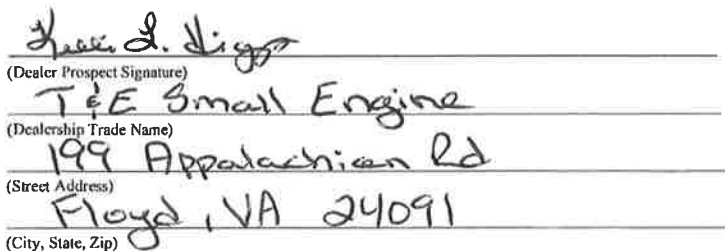 L.
(Dealer Prospect Signature)
T & E Small Engine
(Dealership Trade Name)
199 Appalachian Rd
(Street Address)
Floyd, VA 24091
(City, State, Zip)